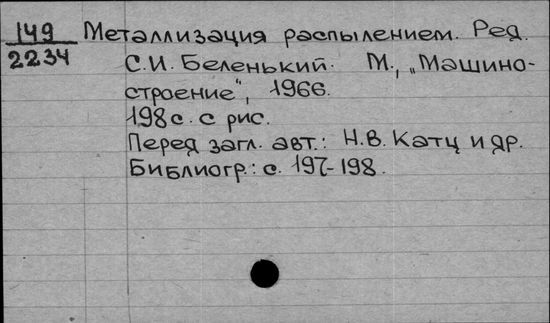 149 Металлизация распылением. Ред.
2234 С.И. Беленький. М., „Машино-
строение", 1966.
198 с. с рис.
Перед загл. авт.: Н.В. Катц и др.
Библиогр.: с. 197-198.